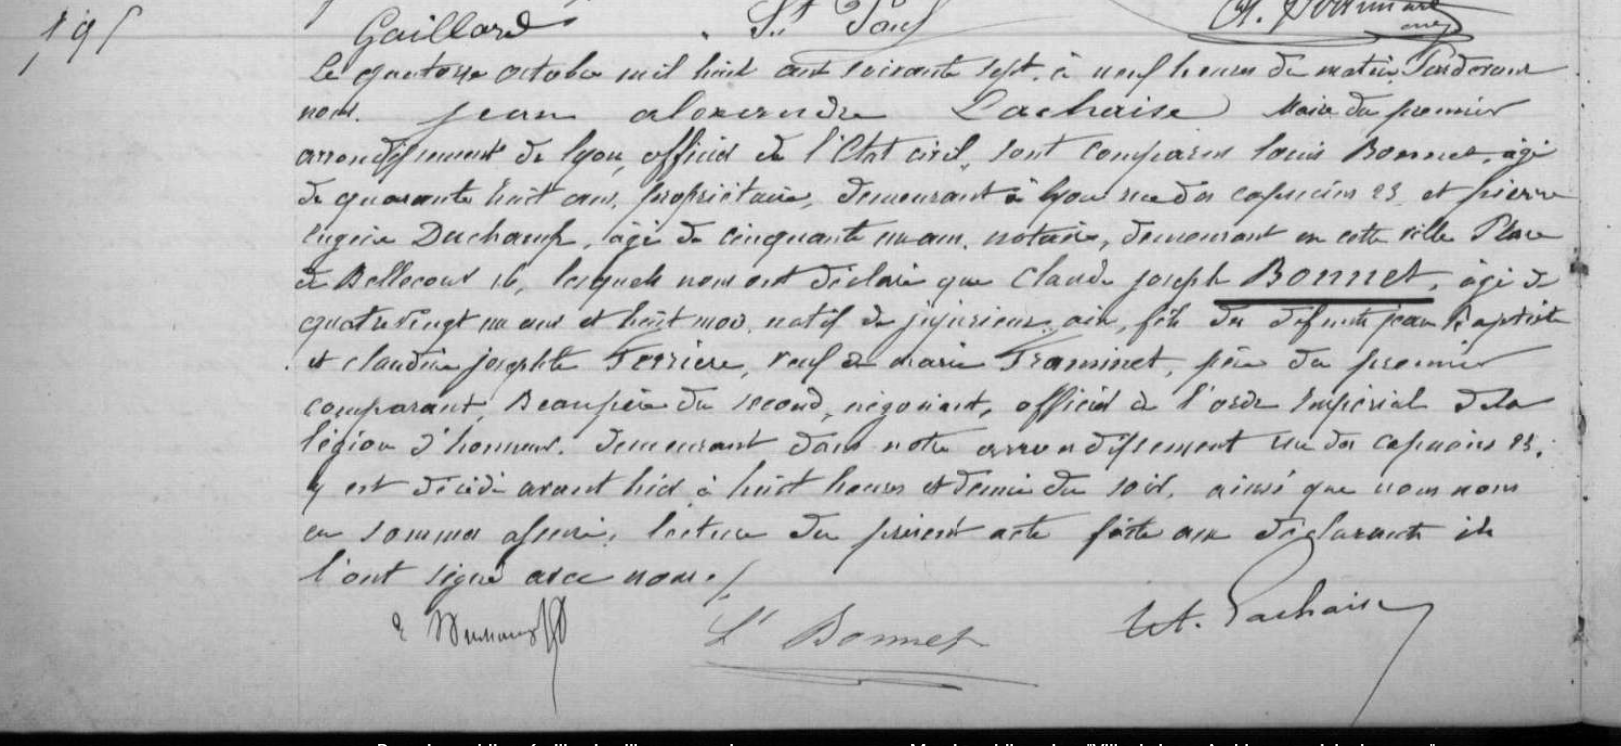 195
Gaillard St Paul
Le quatorze octobre mil huit cent soixante sept, à neuf heures du matin, Pardevant
nous. jean alexandre Lachaise Maire du premier
arrondissement de lyon, officier de l'Etat civil, sont comparus louis Bonnet, âgé
de quarante huit ans, propriétaire, demeurant à lyon rue des capucins 23, et pierre
eugène Duchamp, âgé de cinquante un ans, notaire, demeurant en cette ville Place
de Bellecour 16, lesquels nous ont déclaré que Claude joseph Bonnet, âgé de
quatrevingt un ans et huit mois, natif de jujurieux, ain, fils des défunts jean Baptiste
et claudine josephte Ferrière, veuf de marie Framinet, père du premier
comparant, Beaupère du second, négociant, officier de l'ordre Impérial de la
légion d'honneur. demeurant dans notre arrondissement rue des capucins 23,
y est décédé avant hier à huit heures et demie du soir, ainsi que nous nous
en sommes assuré, lecture du présent acte faite aux déclarants ils
l'ont signé avec nous./.
E Duchamp Ls Bonnet Lachaise